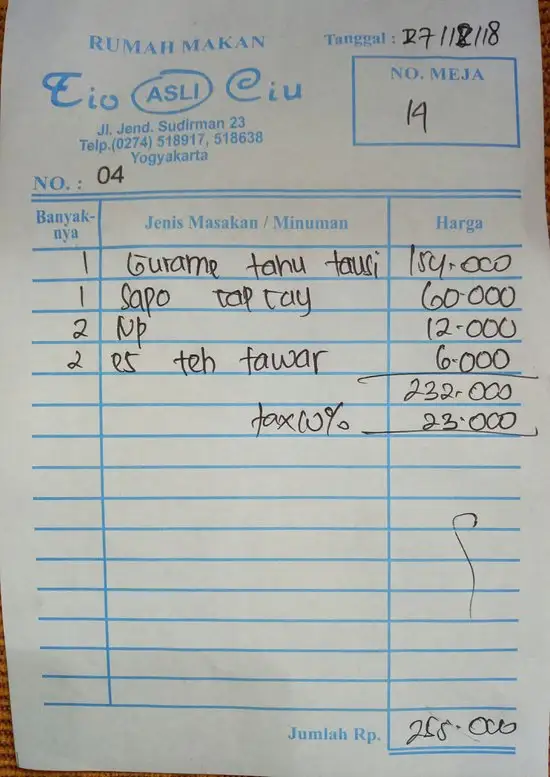 RUMAH MAKAN
Tanggal : 27/12/18
Tio ASLI Ciu
NO. MEJA
14
Jl. Jend. Sudirman 23
Telp.(0274) 518917, 518638
Yogyakarta
NO. : 04
Banyak-nya Jenis Masakan / Minuman Harga
1 Gurame tahu tausi 154.000
1 Sapo cap cay 60.000
2 Np 12.000
2 es teh tawar 6.000
232.000
tax 10% 23.000
Jumlah Rp. 255.000